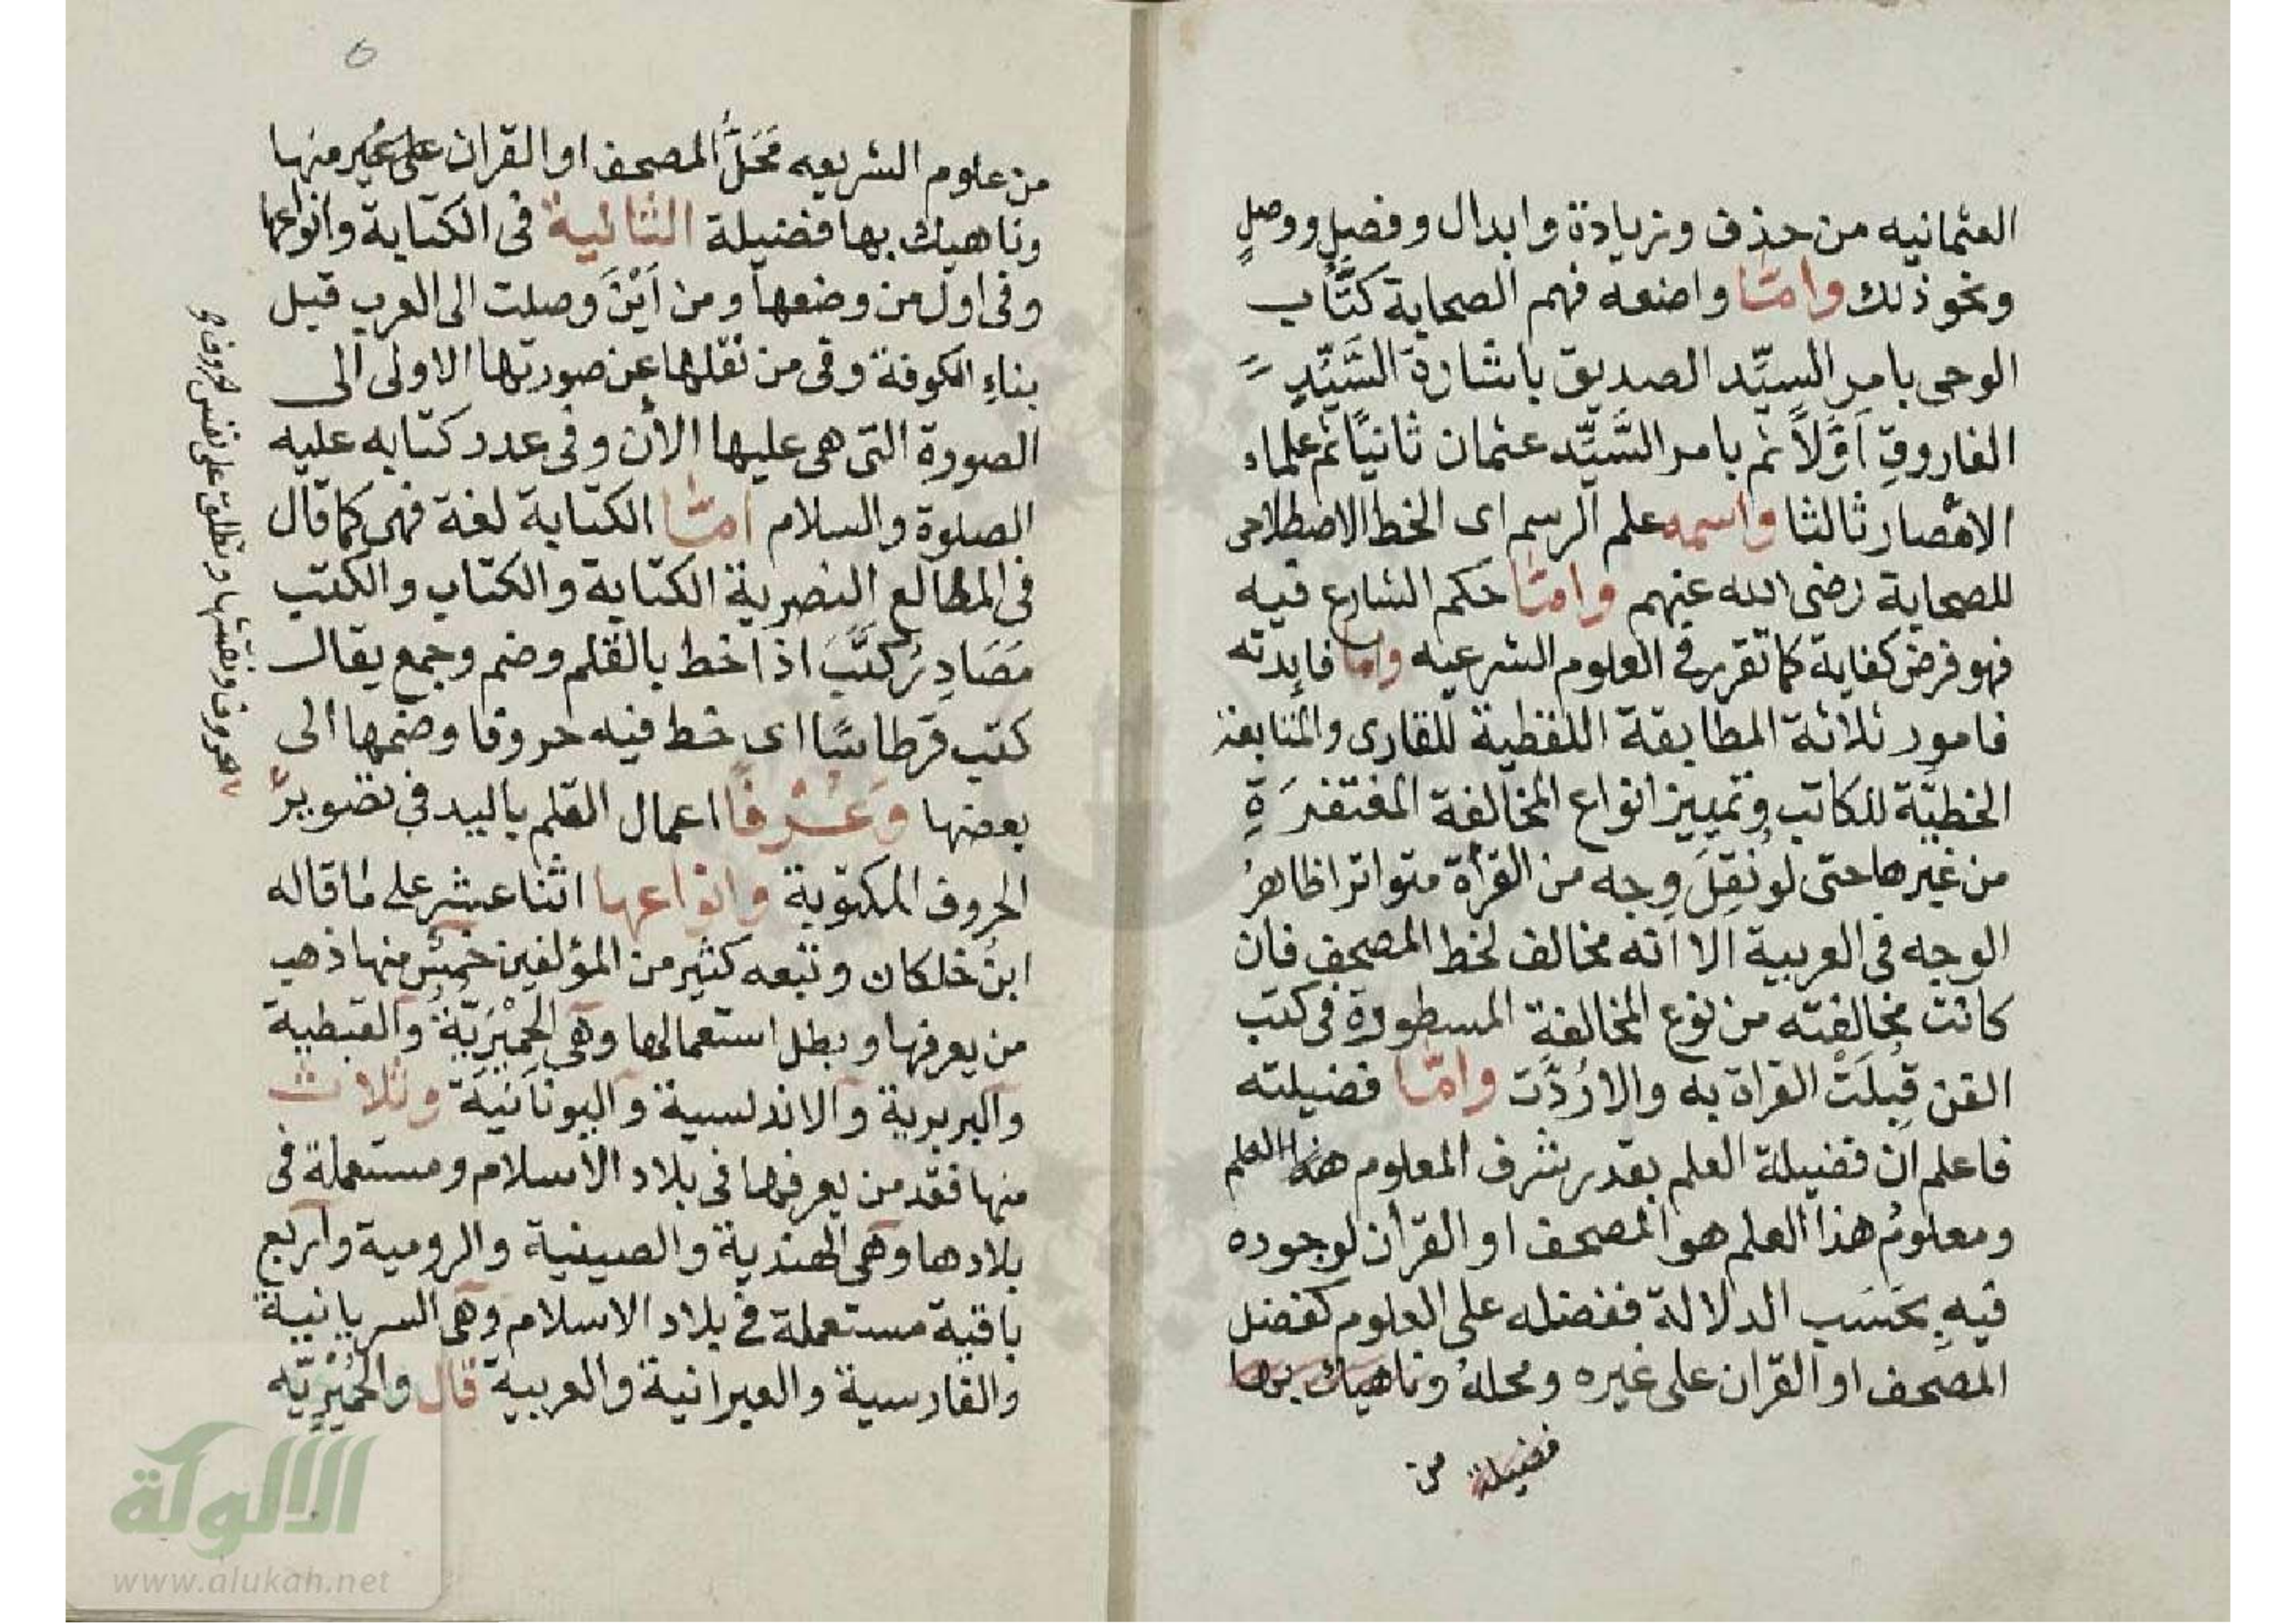 العثمانيه من حذف وزيادة وابدال وفصل ووصل
ونحو ذلك وامّا واضعه فهم الصحابة كتّاب
الوحى بامر السيّد الصديق باشارة السَّيّد
الفاروق اوّلاً ثم بامر السَّيّد عثمان ثانيًا ثم علماء
الامصار ثالثا واسمه علم الرسم اى الخط الاصطلاحى
للصحابة رضى الله عنهم وامّا حكم الشارع فيه
فهو فرض كفاية كما تقرر فى العلوم الشرعيه واما فايدته
فامور ثلاثة المطابقة اللفظية للقارى والمتابعة
الخطيّة للكاتب وتمييز انواع المخالفة المغتفرَةِ
من غيرها حتى لو نُقِلَ وجه من القرأة متواترا ظاهرُ
الوجه فى العربية الا انّه مخالف لخط المصحف فان
كانت مخالفته من نوع المخالفة المسطورة فى كتب
الفن قُبِلَتْ القراة به والا رُدَّت وامّا فضيلته
فاعلم ان فضيلة العلم بقدر شرف المعلوم هذا العلم
ومعلومُ هذا العلم هو المصحف او القرأن لوجوده
فيهِ بحَسَب الدلالة ففضله على العلوم كفضل
المصحف او القرآن على غيره ومحلهُ وناهيك بها
فضيلة من
٥
من علوم الشريعه مَحَلُّ المصحف او القرآن على غير منها
وناهيك بها فضيلة الثانية فى الكتابة وانواعها
وفى اول من وضعها ومن اَيْنَ وصلت الى العرب قبل
بناءِ الكوفة وفى من نقلها عن صورتها الاولى الى
الصورة التى هى عليها الأن وفى عدد كتابه عليه
الصلوة والسلام امّا الكتابة لغة فهى كما قال
فى المطالع النصرية الكتابة والكتاب والكتب
مَصَادِرُ كَتَبَ اذا خط بالقلم وضم وجمع يقال
كتب قرطاسًا اى خط فيه حروفا وضمها الى
بعضها وَعُرْفًا اعمال القلم باليد فى تصوير
الحروف المكتوبة وانواعها اثنا عشر على ما قاله
ابن خلكان وتبعه كثير من المؤلفين خمس منها ذهب
من يعرفها وبطل استعمالها وهى الحِمْيَرِيّةُ والقبطية
والبربرية والاندلسية واليونانية وثلاث
منها فقد من يعرفها فى بلاد الاسلام ومستعملة فى
بلادها وهى الهندية والصينية والرومية واربع
باقية مستعملة فى بلاد الاسلام وهى السريانية
والفارسية والعبرانية والعربية قال والحميريّه
حروف ونقشها وتطلق على نفس